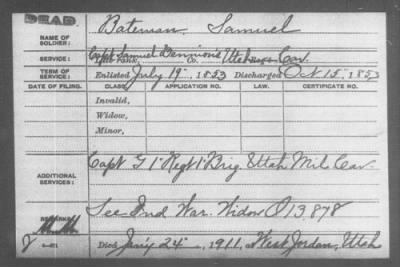 DEAD.
NAME OF SOLDIER: Bateman, Samuel
SERVICE: Capt Samuel Co. Utah Cav.
TERM OF SERVICE: Enlisted July 19", 1853 Discharged Oct. 15", 1853
DATE OF FILING. CLASS. APPLICATION NO. LAW. CERTIFICATE NO.
Invalid,
Widow,
Minor,
ADDITIONAL SERVICES: Capt G 1" Regt 1" Brig. Utah Mil Cav.
See Ind War. Widow O 13,878
REMARKS:
Died 24", 1911, West Jordan, Utah